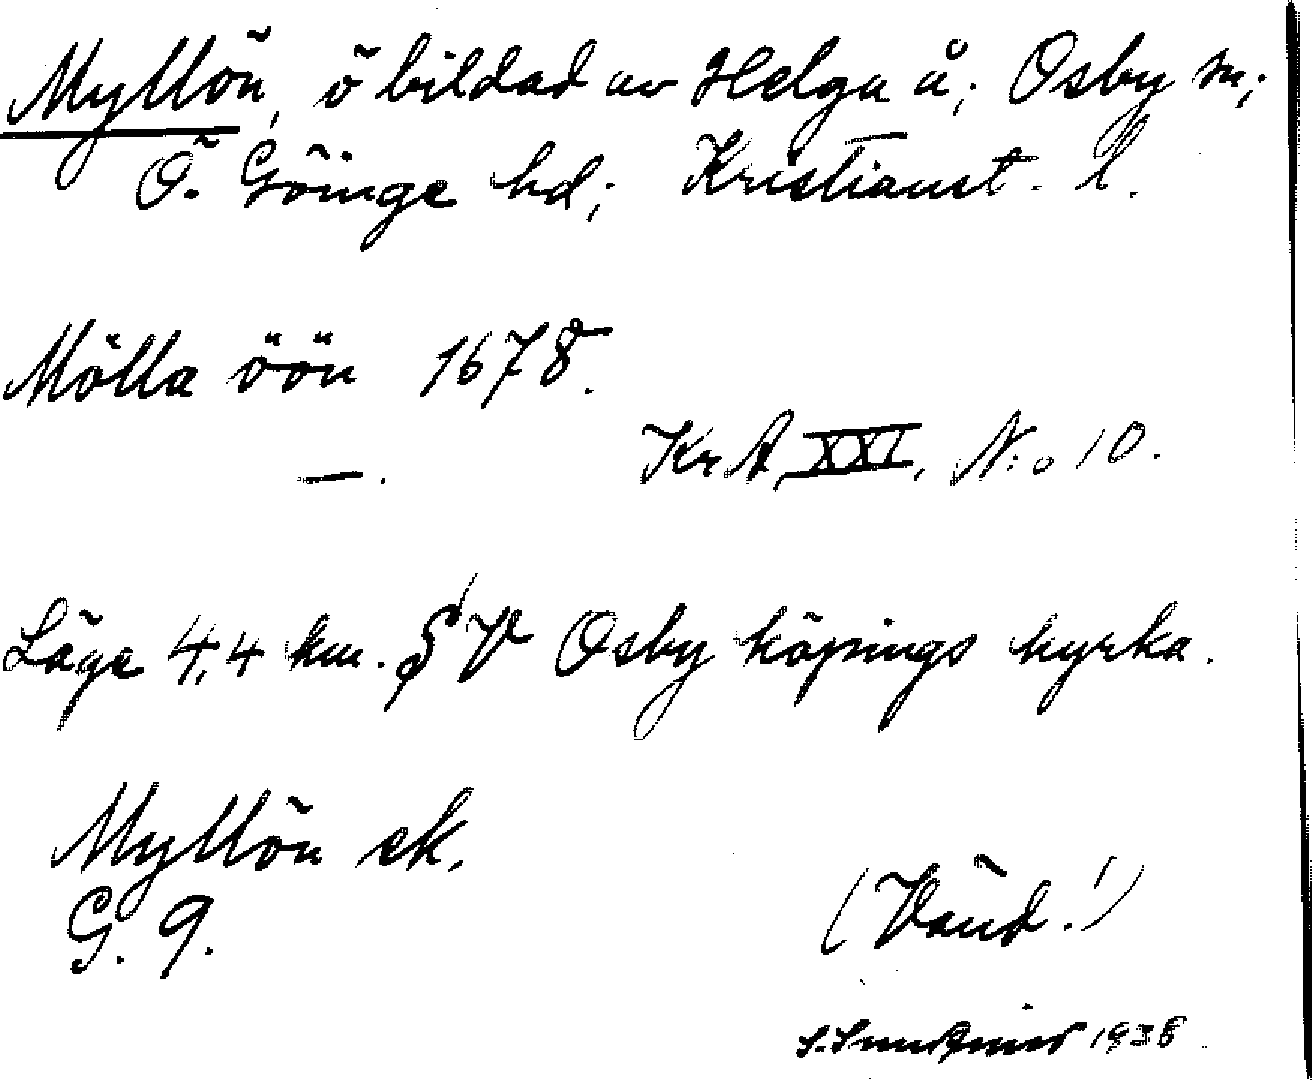 Myllön, ö bildad av Helga å; Osby sn;
Ö. Göinge hd; Kristianst. l.
Mölla öön 1678.
—. KrA, XXI, N:o 10.
Läge 4,4 km. SV Osby köpings kyrka.
Myllön ek.
G. 9.
(Vänd!)
1938